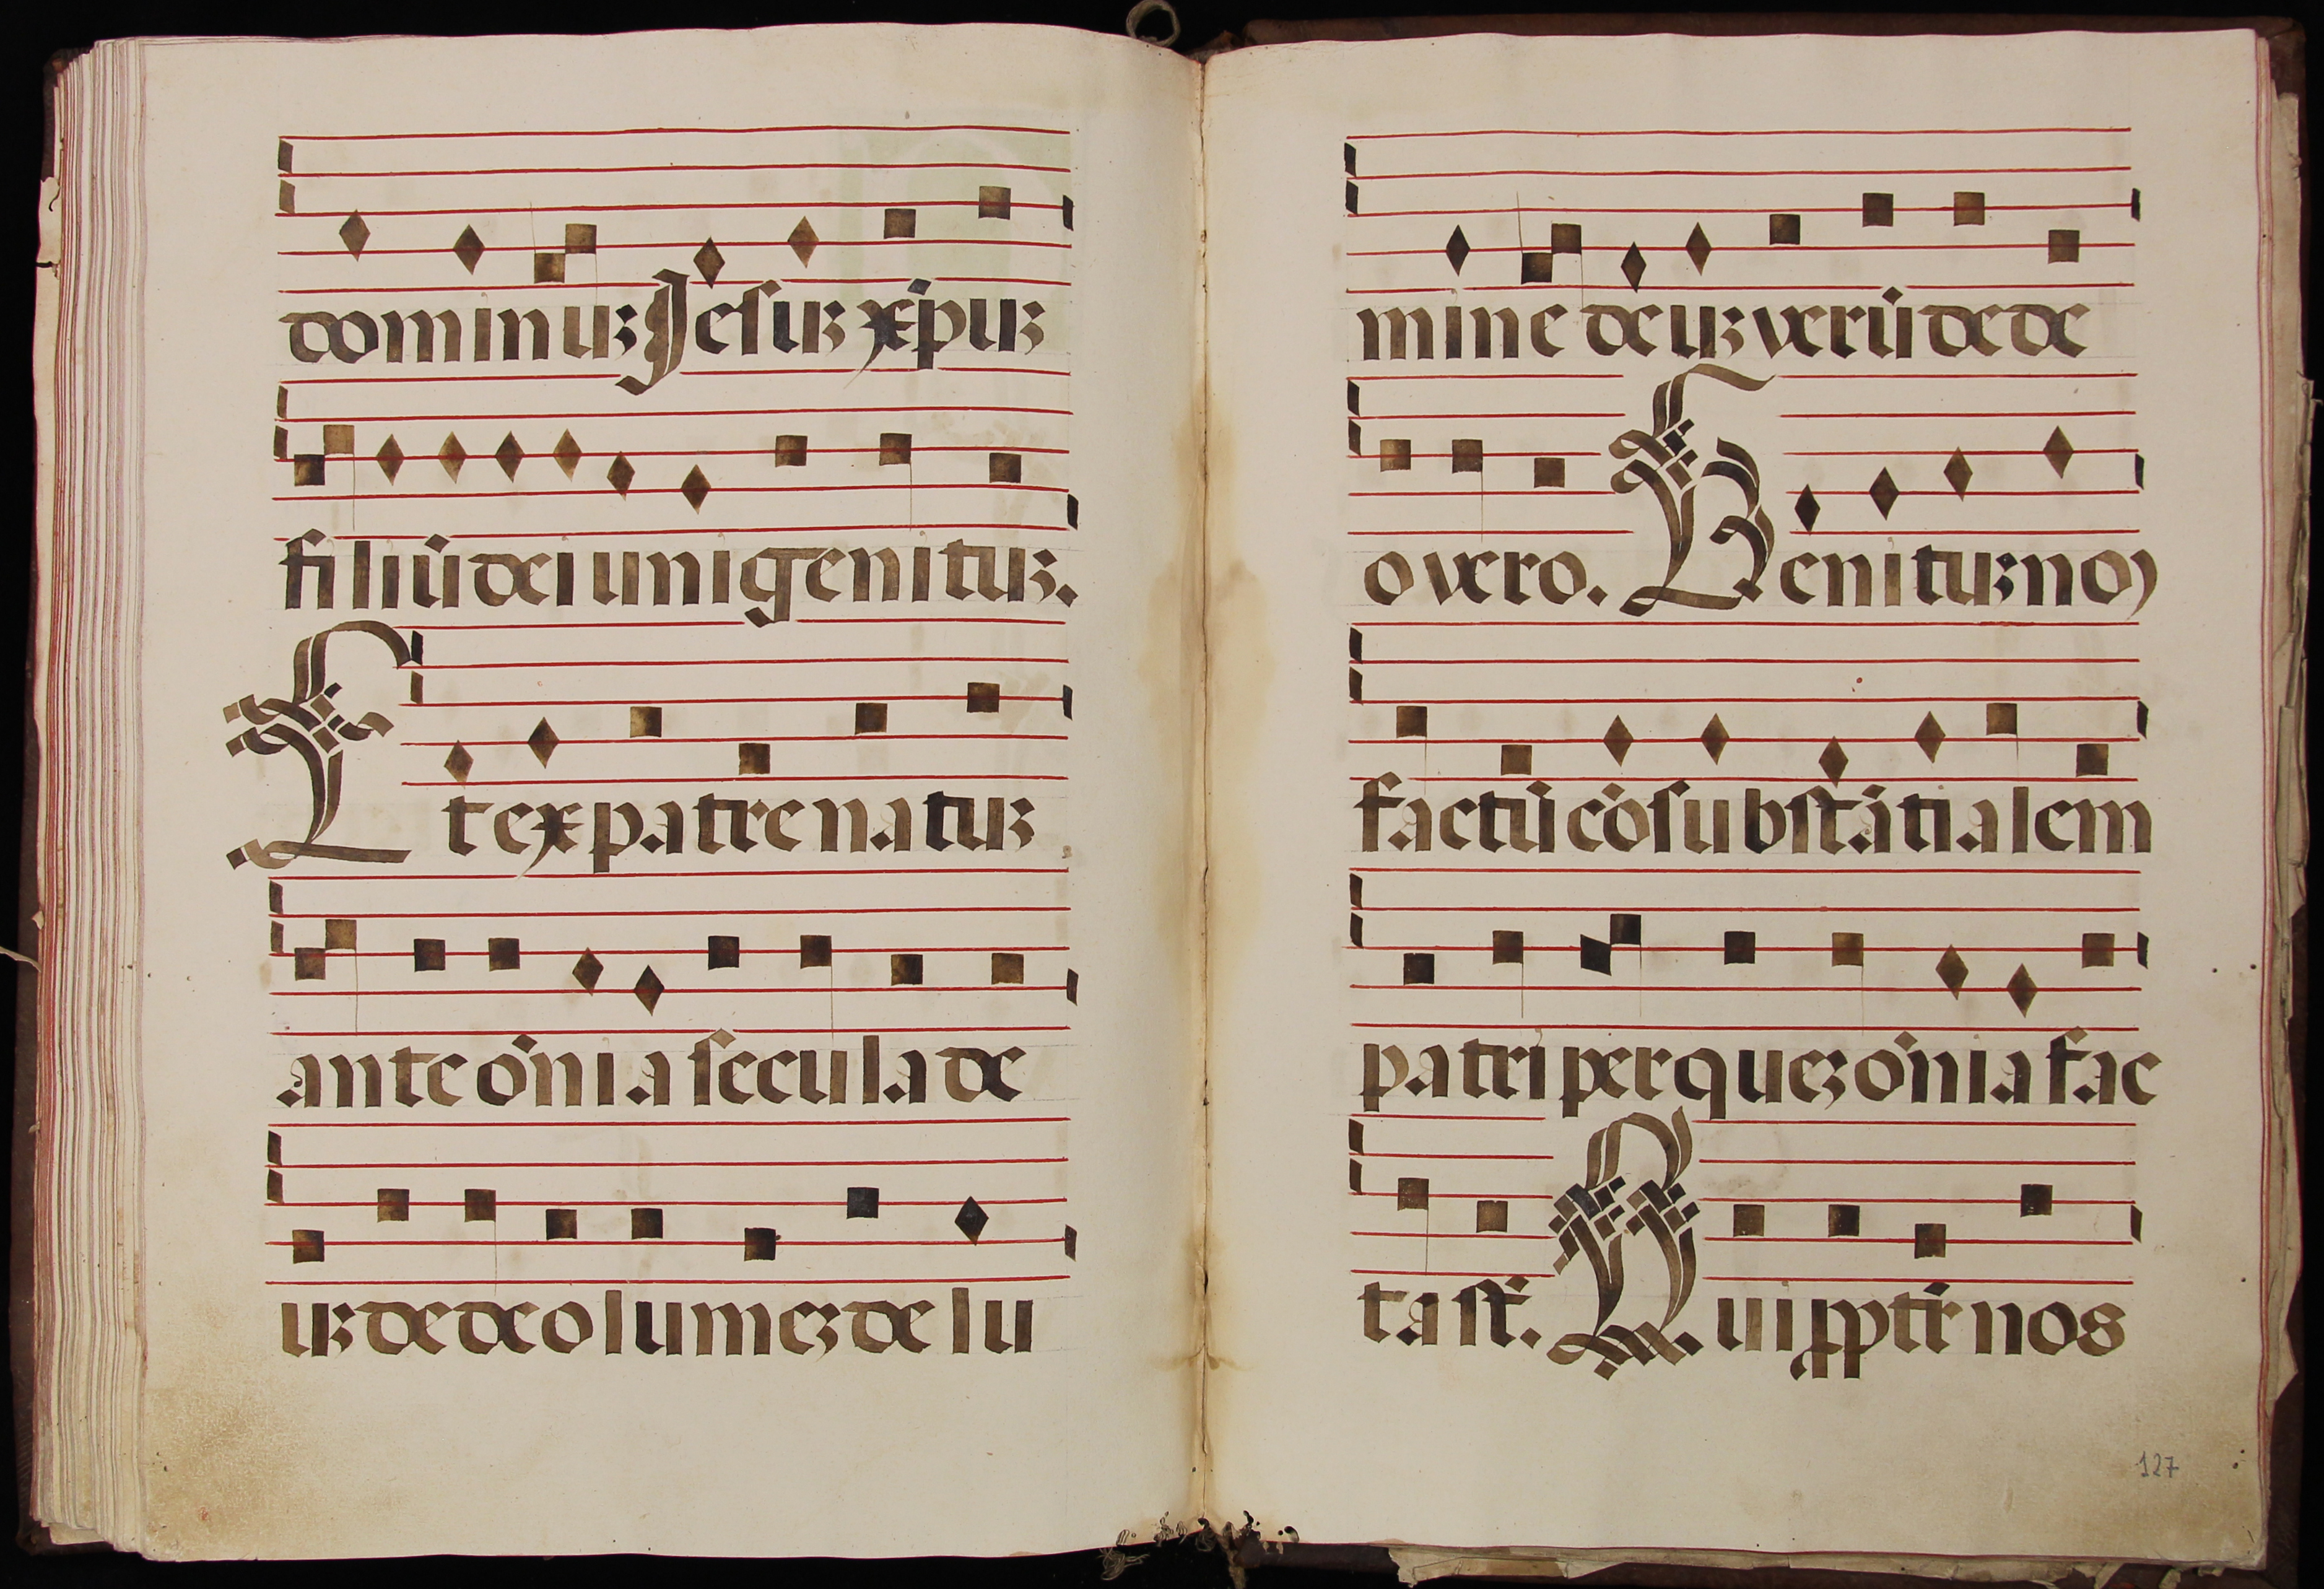 dominuꝫ Jesuꝫ xp̄uꝫ
filiū dei unigenituꝫ.
Et ex patre natuꝫ
ante ōnia secula de
uꝫ de deo lumeꝫ de lu
mine deuꝫ verū de de
o vero. Genituꝫ nō
factū cōsubstātialem
patri per queꝫ ōnia fac
ta st̄. Qui ꝓpt̄r nos
127